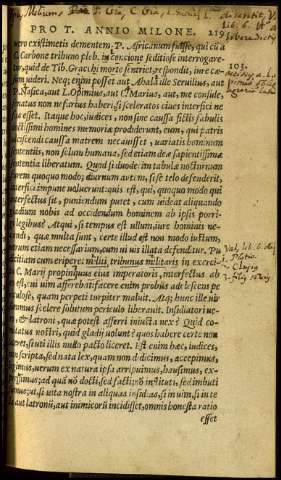 PRO T. ANNIO MILONE. 219
uero existimetis dementem, P. Africanum fuisse, qui cū a
C. Carbone tribuno pleb. in concione seditiose interrogare-
tur, quid de Tib. Gracchi morte sentiret, respondit, iure cæ-
sum uideri. Neq; enim posset aut Ahala ille Seruilius, aut
P. Nasica, aut L. Opimius, aut C. Marius, aut, me consule,
senatus non nefarius haberi, si sceleratos ciues interfici ne
fas esset. Itaque hoc, iudices, non sine causa fictis fabulis
doctissimi homines memoriæ prodiderunt, eum, qui patris
ulciscendi caussa matrem necauisset, uariatis hominum
sententiis, non solum humana, sed etiam deæ sapientissimæ
sententia liberatum. Quod si duodecim tabulæ nocturnum
furem quoquo modo; diurnum autem, si se telo defenderit,
interfici impune uoluerunt: quis est, qui, quoquo modo quis
interfectus sit, puniendum putet, cum uideat aliquando
gladium nobis ad occidendum hominem ab ipsis porrigi
legibus? Atqui, si tempus est ullum, iure hominis ne-
candi, quæ multa sunt, certe illud est non modo iustum,
uerum etiam necessarium, cum ui uis illata defenditur. Pu-
dicitiam cum eriperet militi, tribunus militaris in exerci-
tu C. Marij propinquus eius imperatoris, interfectus ab
eo est, cui uim afferebat: facere enim probus adolescens pe
riculose, quam perpeti turpiter maluit. Atq; hunc ille uir
summus scelere solutum periculo liberauit. Insidiatori ue-
ro, & latroni, quæ potest afferri iniusta nex? Quid co-
mitatus nostri, quid gladij uolunt? quos habere certe non
liceret, si uti illis nullo pacto liceret. Est enim hæc, iudices,
non scripta, sed nata lex, quam non didicimus, accepimus,
legimus, uerum ex natura ipsa arripuimus, hausimus, ex-
pressimus; ad quā nō docti, sed facti: nō instituti, sed imbuti
sumus; ut, si uita nostra in aliquas insidias, si in uim, si in te
la aut latronū, aut inimicorū incidisset, omnis honesta ratio
esset
103.